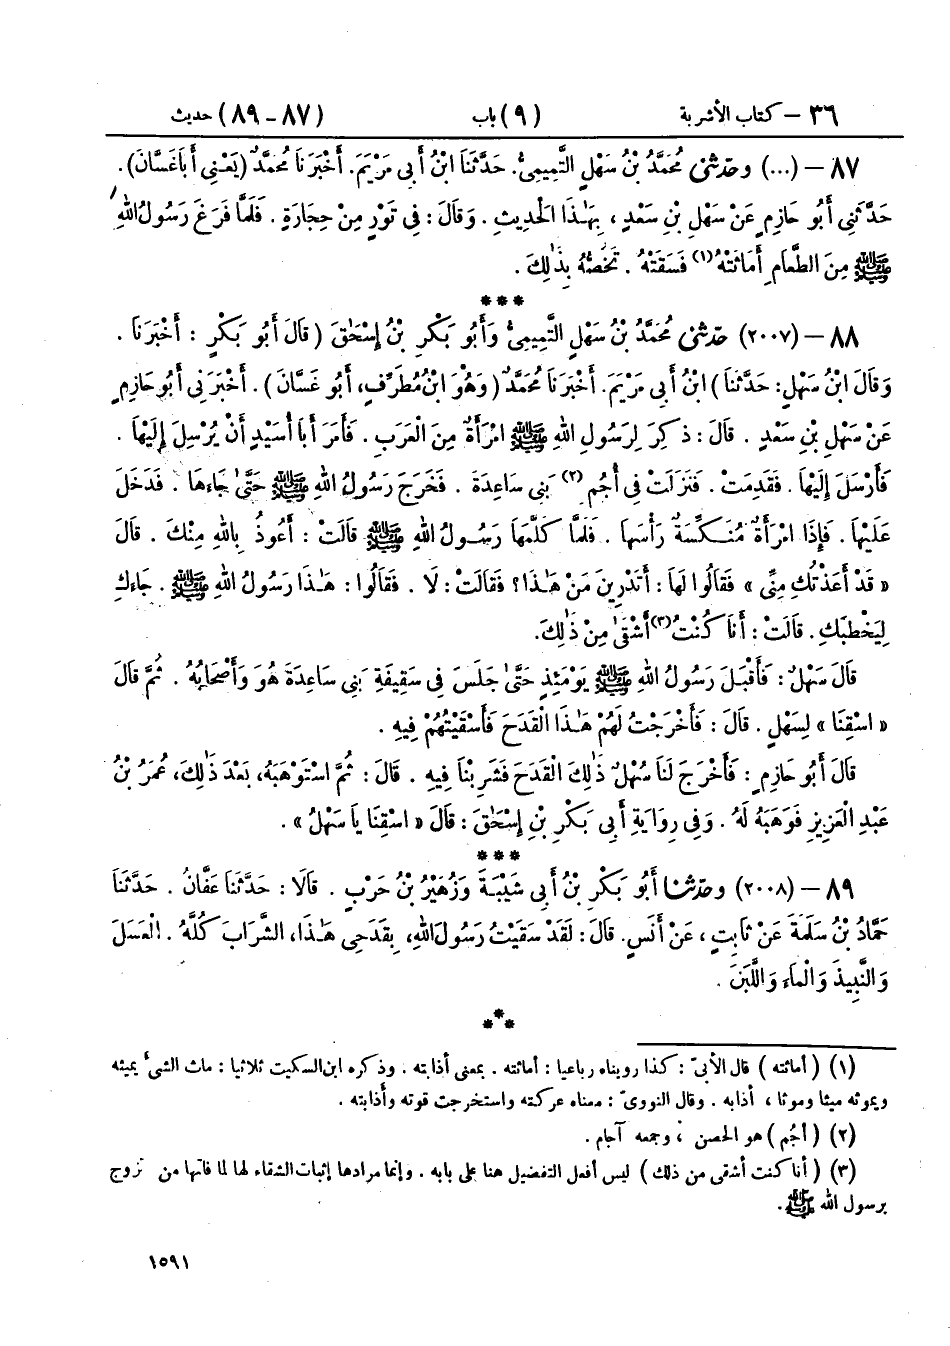 ٣٦ – كتاب الأشربة (٩) باب (٨٧ – ٨٩) حديث
٨٧ – (...) وحَدَّثَنِي مُحَمَّدُ بْنُ سَهْلٍ التَّمِيمِيُّ. حَدَّثَنَا ابْنُ أَبِي مَرْيَمَ. أَخْبَرَنَا مُحَمَّدٌ (يَعْنِي أَبَا غَسَّانَ).
حَدَّثَنِي أَبُو حَازِمٍ عَنْ سَهْلِ بْنِ سَعْدٍ، بِهَٰذَا الْحَدِيثِ. وَقَالَ: فِي تَوْرٍ مِنْ حِجَارَةٍ. فَلَمَّا فَرَغَ رَسُولُ اللهِ
ﷺ مِنَ الطَّعَامِ أَمَاثَتْهُ(١) فَسَقَتْهُ. تَخُصُّهُ بِذَٰلِكَ.
***
٨٨ – (٢٠٠٧) حَدَّثَنِي مُحَمَّدُ بْنُ سَهْلٍ التَّمِيمِيُّ وَأَبُو بَكْرِ بْنُ إِسْحَٰقَ (قَالَ أَبُو بَكْرٍ: أَخْبَرَنَا.
وَقَالَ ابْنُ سَهْلٍ: حَدَّثَنَا) ابْنُ أَبِي مَرْيَمَ. أَخْبَرَنَا مُحَمَّدٌ (وَهُوَ ابْنُ مُطَرِّفٍ، أَبُو غَسَّانَ). أَخْبَرَنِي أَبُو حَازِمٍ
عَنْ سَهْلِ بْنِ سَعْدٍ. قَالَ: ذُكِرَ لِرَسُولِ اللهِ ﷺ امْرَأَةٌ مِنَ الْعَرَبِ. فَأَمَرَ أَبَا أُسَيْدٍ أَنْ يُرْسِلَ إِلَيْهَا.
فَأَرْسَلَ إِلَيْهَا. فَقَدِمَتْ. فَنَزَلَتْ فِي أُجُمِ(٢) بَنِي سَاعِدَةَ. فَخَرَجَ رَسُولُ اللهِ ﷺ حَتَّىٰ جَاءَهَا. فَدَخَلَ
عَلَيْهَا. فَإِذَا امْرَأَةٌ مُنَكِّسَةٌ رَأْسَهَا. فَلَمَّا كَلَّمَهَا رَسُولُ اللهِ ﷺ قَالَتْ: أَعُوذُ بِاللهِ مِنْكَ. قَالَ
« قَدْ أَعَذْتُكِ مِنِّي » فَقَالُوا لَهَا: أَتَدْرِينَ مَنْ هَٰذَا؟ فَقَالَتْ: لَا. فَقَالُوا: هَٰذَا رَسُولُ اللهِ ﷺ. جَاءَكِ
لِيَخْطُبَكِ. قَالَتْ: أَنَا كُنْتُ(٣) أَشْقَىٰ مِنْ ذَٰلِكَ.
قَالَ سَهْلٌ: فَأَقْبَلَ رَسُولُ اللهِ ﷺ يَوْمَئِذٍ حَتَّىٰ جَلَسَ فِي سَقِيفَةِ بَنِي سَاعِدَةَ هُوَ وَأَصْحَابُهُ. ثُمَّ قَالَ
« اسْقِنَا » لِسَهْلٍ. قَالَ: فَأَخْرَجْتُ لَهُمْ هَٰذَا الْقَدَحَ فَأَسْقَيْتُهُمْ فِيهِ.
قَالَ أَبُو حَازِمٍ: فَأَخْرَجَ لَنَا سَهْلٌ ذَٰلِكَ الْقَدَحَ فَشَرِبْنَا فِيهِ. قَالَ: ثُمَّ اسْتَوْهَبَهُ، بَعْدَ ذَٰلِكَ، عُمَرُ بْنُ
عَبْدِ الْعَزِيزِ فَوَهَبَهُ لَهُ. وَفِي رِوَايَةِ أَبِي بَكْرِ بْنِ إِسْحَٰقَ: قَالَ « اسْقِنَا يَا سَهْلُ ».
***
٨٩ – (٢٠٠٨) وحَدَّثَنَا أَبُو بَكْرِ بْنُ أَبِي شَيْبَةَ وَزُهَيْرُ بْنُ حَرْبٍ. قَالَا: حَدَّثَنَا عَفَّانُ. حَدَّثَنَا
حَمَّادُ بْنُ سَلَمَةَ عَنْ ثَابِتٍ، عَنْ أَنَسٍ. قَالَ: لَقَدْ سَقَيْتُ رَسُولَ اللهِ، بِقَدَحِي هَٰذَا، الشَّرَابَ كُلَّهُ. الْعَسَلَ
وَالنَّبِيذَ وَالْمَاءَ وَاللَّبَنَ.
***
(١) (أماثته) قال الأبيّ: كذا رويناه رباعيا: أماثته. بمعنى أذابته. وذكره ابن السكيت ثلاثيا: ماث الشيء يميثه
ويموثه ميثا وموثا، أذابه. وقال النوويّ: معناه عركته واستخرجت قوته وأذابته.
(٢) (أجُم) هو الحصن، وجمعه آجام.
(٣) (أنا كنت أشقى من ذلك) ليس أفعل التفضيل هنا على بابه. وإنما مرادها إثبات الشقاء لها لما فاتها من تزوج
برسول الله ﷺ.
١٥٩١